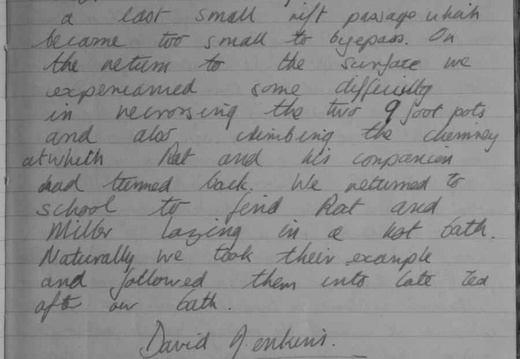 a last small rift passage which
became too small to byepass. On
the return to the surface we
experienced some difficulty
in recrossing the two 9 foot pots
and also climbing the chimney
at which Rat and his companion
had turned back. We returned to
school to find Rat and
Miller lazing in a hot bath.
Naturally we took their example
and followed them into late tea
after our bath.
David Jenkins.